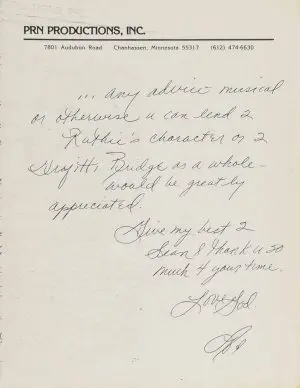 PRN PRODUCTIONS, INC.
7801 Audubon Road Chanhassen, Minnesota 55317 (612) 474-6630
... any advice musical
or otherwise u can lend 2
Ruthie's character or 2
Graffiti Bridge as a whole -
would be greatly
appreciated.
Give my best 2
Sean & thank u so
much 4 your time.
Love God